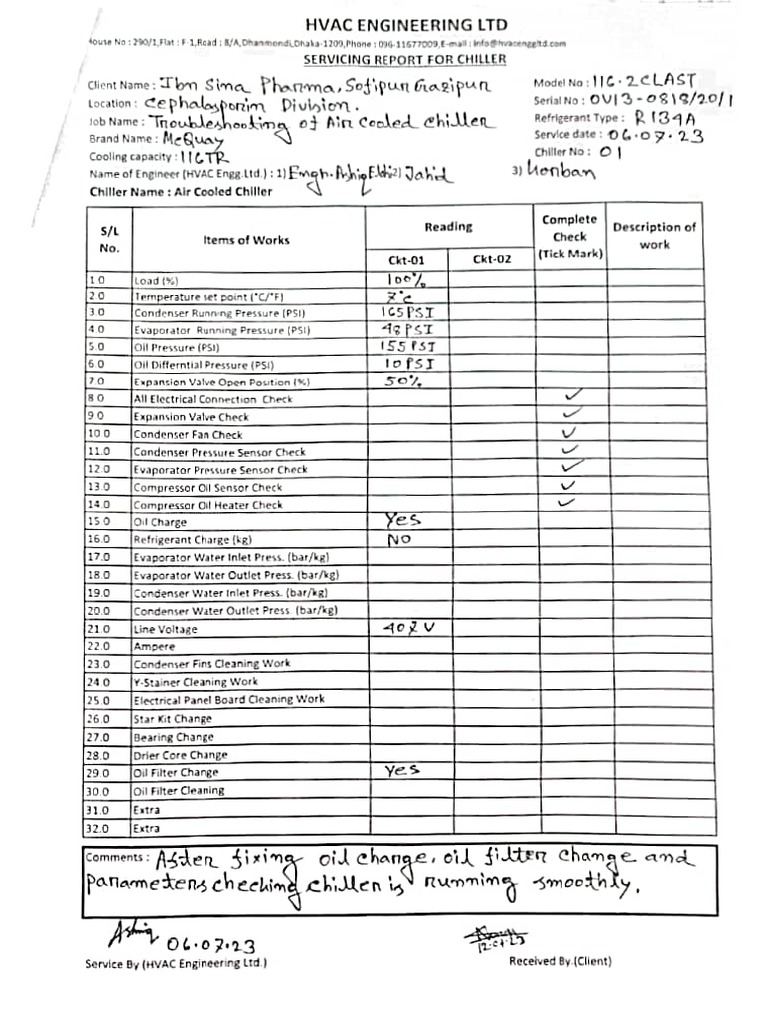 HVAC ENGINEERING LTD
House No : 290/1,Flat : F-1,Road : 8/A,Dhanmondi,Dhaka-1209,Phone : 096-11677009,E-mail : info@hvacenggltd.com
SERVICING REPORT FOR CHILLER
Client Name : Ibn Sina Pharma, Sofipur Gazipur
Model No : 116.2CLAST
Location : Cephalosporim Division.
Serial No : OV13-0818/20/1
Job Name : Troubleshooting of Air cooled chiller
Refrigerant Type : R134A
Brand Name : McQuay
Service date : 06.07.23
Cooling capacity : 116TR
Chiller No : 01
Name of Engineer (HVAC Engg.Ltd.) : 1) Engr. Ashiq Elahi 2) Jahid 3) Korban
Chiller Name : Air Cooled Chiller
S/L No. Items of Works Reading Complete Check (Tick Mark) Description of work
Ckt-01 Ckt-02
1.0 Load (%) 100%
2.0 Temperature set point (°C/°F) 7°c
3.0 Condenser Running Pressure (PSI) 165 PSI
4.0 Evaporator Running Pressure (PSI) 48 PSI
5.0 Oil Pressure (PSI) 155 PSI
6.0 Oil Differntial Pressure (PSI) 10 PSI
7.0 Expansion Valve Open Position (%) 50%
8.0 All Electrical Connection Check ✓
9.0 Expansion Valve Check ✓
10.0 Condenser Fan Check ✓
11.0 Condenser Pressure Sensor Check ✓
12.0 Evaporator Pressure Sensor Check ✓
13.0 Compressor Oil Sensor Check ✓
14.0 Compressor Oil Heater Check ✓
15.0 Oil Charge Yes
16.0 Refrigerant Charge (kg) NO
17.0 Evaporator Water Inlet Press. (bar/kg)
18.0 Evaporator Water Outlet Press. (bar/kg)
19.0 Condenser Water Inlet Press. (bar/kg)
20.0 Condenser Water Outlet Press. (bar/kg)
21.0 Line Voltage 402 V
22.0 Ampere
23.0 Condenser Fins Cleaning Work
24.0 Y-Stainer Cleaning Work
25.0 Electrical Panel Board Cleaning Work
26.0 Star Kit Change
27.0 Bearing Change
28.0 Drier Core Change
29.0 Oil Filter Change Yes
30.0 Oil Filter Cleaning
31.0 Extra
32.0 Extra
Comments : After fixing oil change, oil filter change and
parameters checking chiller is running smoothly.
Ashiq 06.07.23
Service By (HVAC Engineering Ltd.)
Received By.(Client)